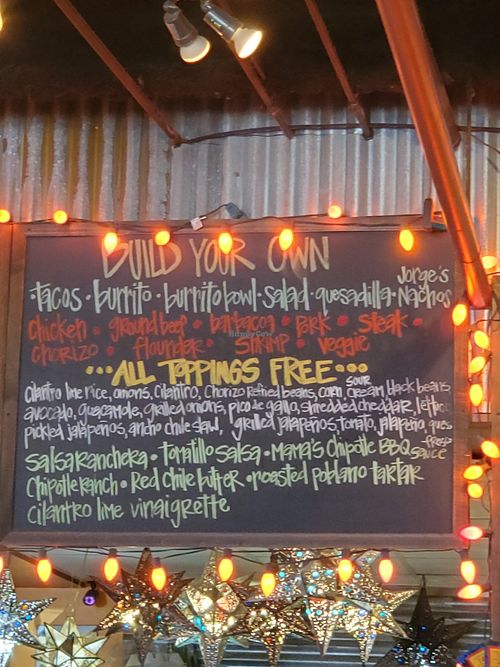 BUILD YOUR OWN
·tacos·burrito·burrito bowl·salad·quesadilla·Jorge's Nachos
chicken · ground beef · barbacoa · pork · steak ·
chorizo · flounder · shrimp · veggie
...ALL TOPPINGS FREE...
cilantro lime rice, onions, cilantro, chorizo refried beans, corn, sour cream, black beans,
avocado, guacamole, grilled onions, pico de gallo, shredded cheddar, lettuce
pickled jalapeños, ancho chile slaw, grilled jalapeños, tomato, jalapeño, queso fresco
salsa ranchera · tomatillo salsa · Mama's Chipotle BBQ sauce
Chipotle ranch · Red Chile butter · roasted poblano tartar
cilantro lime vinaigrette